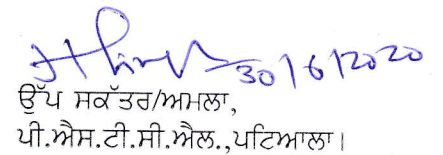 30/6/2020
ਉੱਪ ਸਕੱਤਰ/ਅਮਲਾ,
ਪੀ.ਐਸ.ਟੀ.ਸੀ.ਐਲ.,ਪਟਿਆਲਾ।